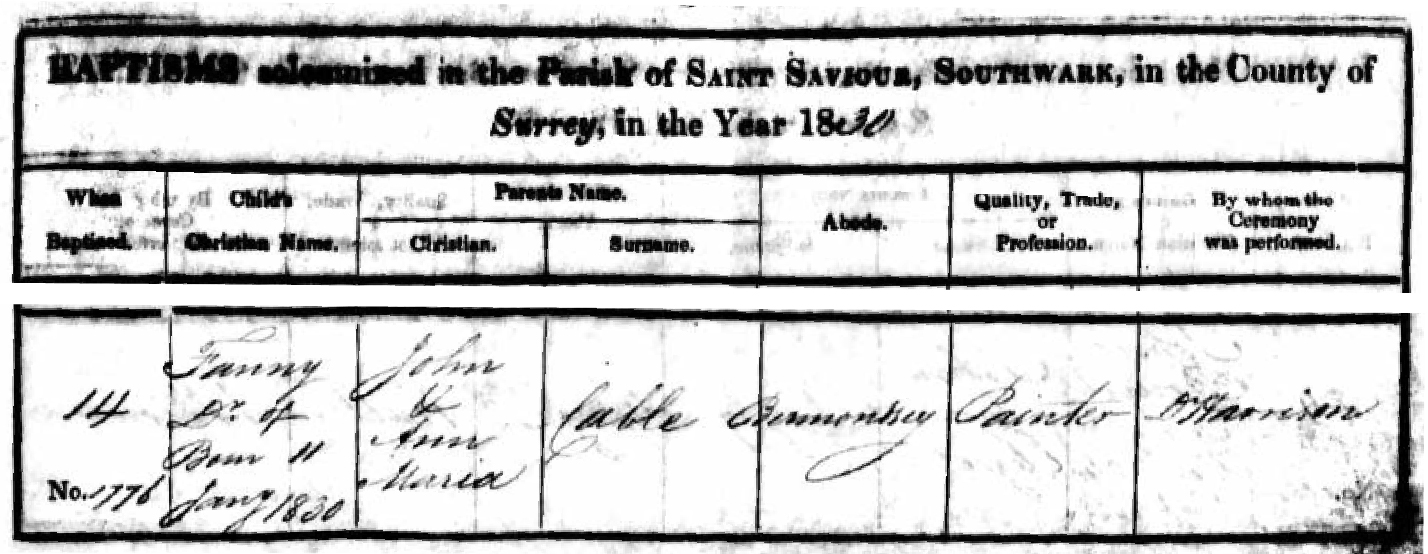 BAPTISMS solemnized in the Parish of SAINT SAVIOUR, SOUTHWARK, in the County of
Surrey, in the Year 1830
When
Baptised.
Child's
Christian Name.
Parents Name.
Christian.
Surname.
Abode.
Quality, Trade,
or
Profession.
By whom the
Ceremony
was performed.
14
No. 1776
Fanny
Dr. of
Born 11
Jany 1830
John
&
Ann
Maria
Cable
Bermondsey
Painter
Harrison